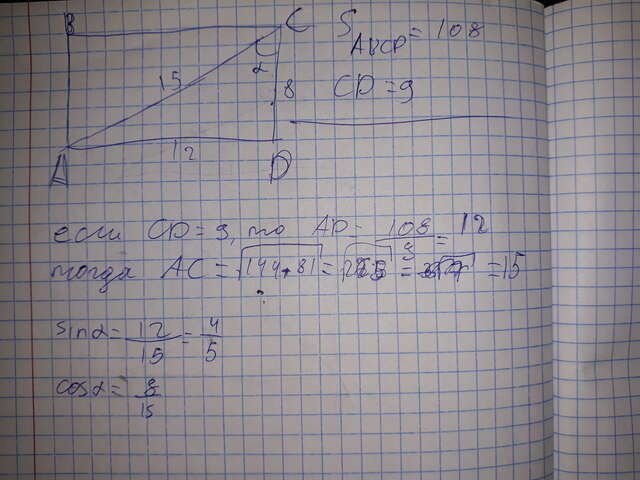 B C
15 α 8
A 12 D
S ABCD = 108
CD = 9
если CD = 9, то AD = 108/9 = 12
тогда AC = √144+81 = = 15
sinα = 12/15 = 4/5
cosα = 8/15